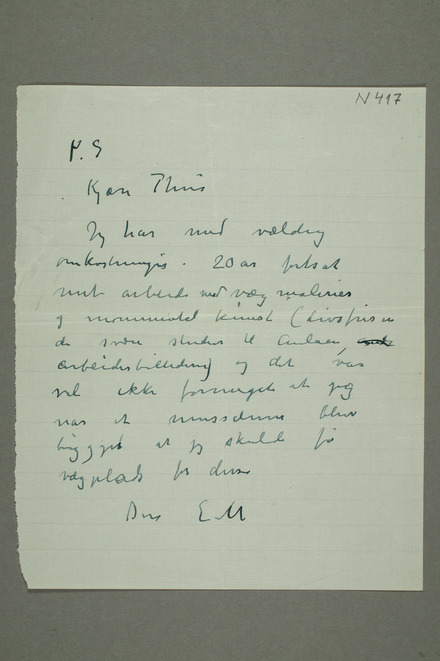 N 417
P. S
Kjære Thiis
Jeg har med vældig
omkostninger. 20 år fortsat
mit arbeide med vægmalerier
og monumental kunst (Livsfrisen
de svære studier til Aulaen
arbeiderbilledene) og det var
vel ikke formeget at jeg
når et musseum blev
bygget at jeg skulde få
vægplads for disse
Din E M